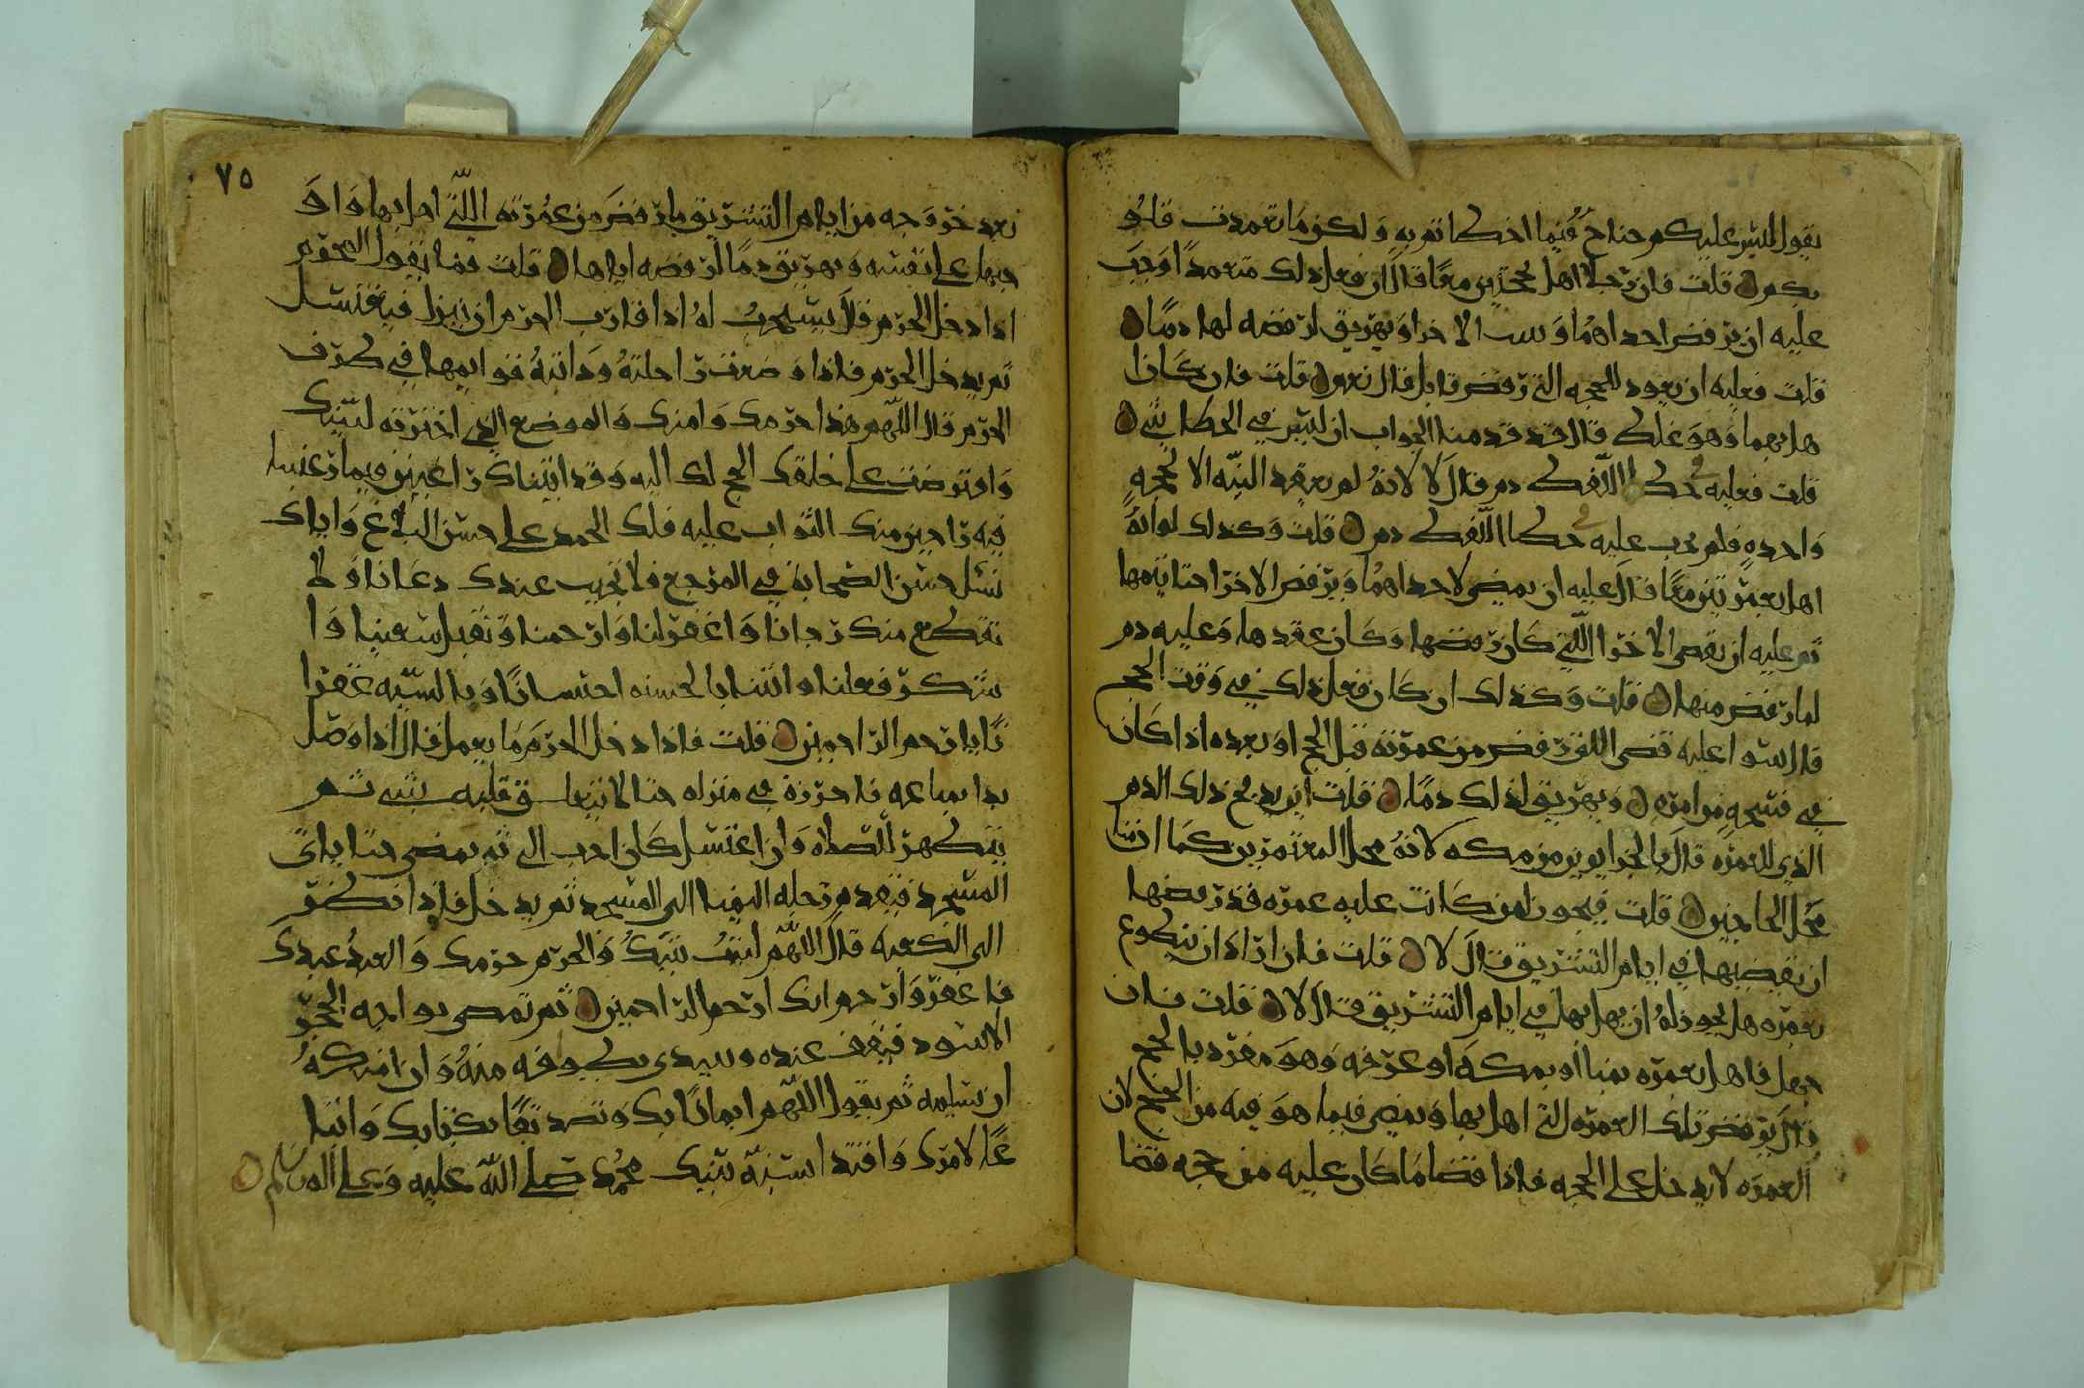 يقول ليس عليكم جناح فيما اخطاتم به ولكن ما تعمدت قلو
بكم قلت فان رجلا اهل بحجتين معا قال ان فعل ذلك متعمدا وجب
عليه ان يرفض احداهما و الاخرا ويهريق لرفضه لها دما
قلت فعليه ان يعود للحجه التي رفض قابل قال نعم قلت فان كان
هل بهما وهو غلط قال قد قدمنا الجواب ان ليس في الخطا شي
قلت فعليه في خطا اللفظ دم قال لا لانه لم يعقد النيه الا لحجه
واحده فلم يجب عليه في خطا اللفظ دم قلت وكذلك لو انه
اهل بعمرتين معا قال عليه ان يمضي لاحداهما ويرفض الاخرا حتا يتمها
ثم عليه ان يقضي الاخرا اللتي كان رفضها وكان عقدها وعليه دم
لما رفض منها قلت وكذلك ان كان فعل ذلك في وقت الحج
قال سوا عليه قضى اللتي رفض من عمرته قبل الحج او بعده اذا كان
في فسحه من امره ويهريق لذلك دما قلت اين يذبح ذلك الدم
الذي للعمره قال بالجزارين من مكه لانه محل المعتمرين كما ان منا
محل الحاجين قلت فيجوز لمن كانت عليه عمره قد رفضها
ان يقضيها في ايام التشريق قال لا قلت فان اراد ان يتطوع
بعمره هل يجوز له ان يهل بها في ايام التشريق قال لا قلت فان
جهل فاهل بعمره بمنا او بمكه او عرفه وهو مفرد بالحج
قال يرفض تلك العمره التي اهل بها ويمضي فيما هو فيه من الحج لان
العمره لا يدخل على الحجه فاذا قضا ما كان عليه من حجه قضا
٧٥
بعد خروجه من ايام التشريق ما رفض من عمرته اللتي اهل بها واو
جبها على نفسه ويهريق دما لرفضه اياها قلت فما يقول المحرم
اذا دخل الحرم قال يستحب له اذا قارب الحرم ان ينزل فيغتسل
ثم يدخل الحرم فاذا وضعت راحلته ودابته قوايمها في طرف
الحرم قال اللهم هذا حرمك وامنك والموضع الذي اخترته لنبيك
وافترضت على خلقك الحج لك اليه وقد اتيناك راغبين فيما رغبتنا
فيه راجين منك الثواب عليه فلك الحمد على حسن البلاغ واياك
نسل حسن الصحابة في المرجع فلا تخيب عندك دعانا ولا
تقطع منك رجانا واغفر لنا وارحمنا وتقبل سعينا وا
شكر فعلنا واتنا بالحسنه احسانا وبالسيه غفرا
نا يا ارحم الراحمين قلت فاذا دخل الحرم ما يعمل قال اذا وصل
بدا بمتاعه فاحرزه في منزله حتا لا يتعلق قلبه بشي ثم
يتطهر للصلاه وان اغتسل كان احب الي ثم يمضي حتا ياتي
المسجد فيقدم رجله اليمنا الى المسجد ثم يدخل فاذا نظر
الى الكعبه قال اللهم البيت بيتك والحرم حرمك والعبد عبدك
فاغفر وارحم انك ارحم الراحمين ثم تمضي يواجه الحجر
الاسود فيقف عنده ويبتدي بطوفه منه وان امكنه
ان يستلمه ثم يقول اللهم ايمانا بك وتصديقا بكتابك واتبا
عا لامرك واقتدا بسنة نبيك محمد صلى الله عليه وعلى اله وسلم